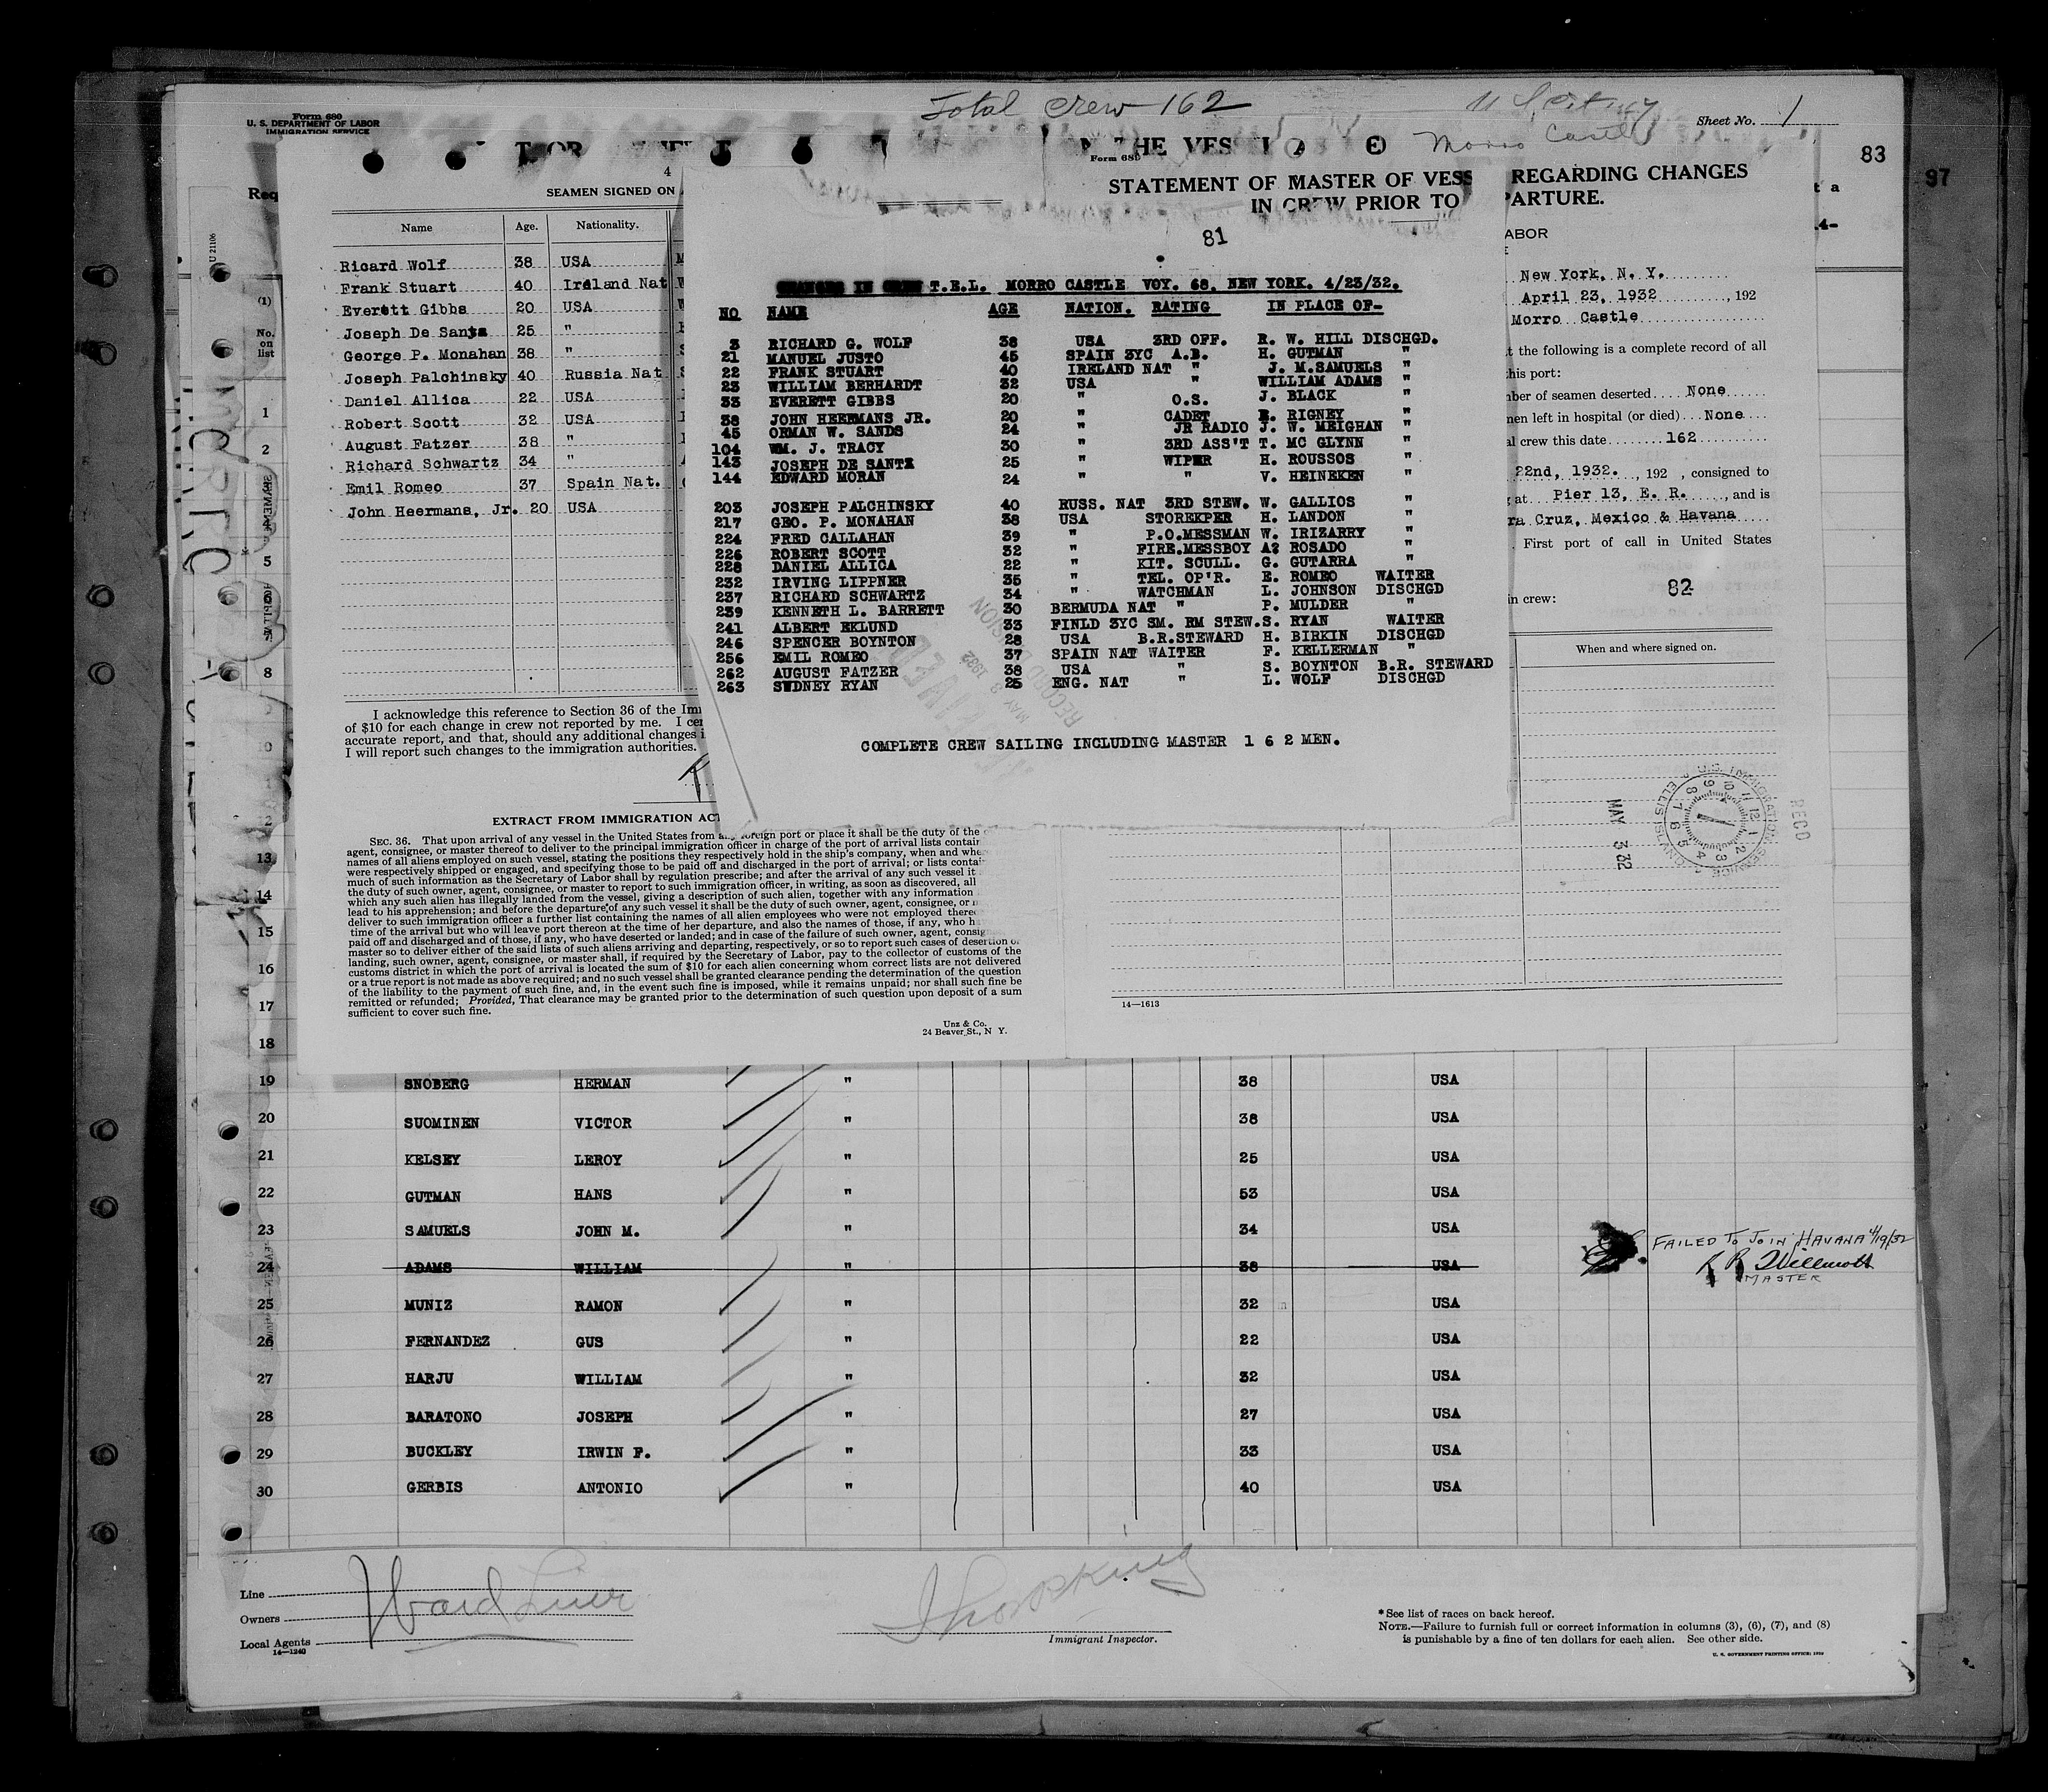 Total Crew 162
Form 680
U. S. DEPARTMENT OF LABOR
IMMIGRATION SERVICE
Sheet No. 1
Morro Castle
83
97
4
SEAMEN SIGNED ON
Name Age. Nationality.
Ricard Wolf 38 USA
Frank Stuart 40 Ireland Nat
Everett Gibbs 20 USA
Joseph De Santz 25 "
George P. Monahan 38 "
Joseph Palchinsky 40 Russia Nat
Daniel Allica 22 USA
Robert Scott 32 USA
August Fatzer 38 "
Richard Schwartz 34 "
Emil Romeo 37 Spain Nat.
John Heermans, Jr. 20 USA
I acknowledge this reference to Section 36 of the
of $10 for each change in crew not reported by me. I
accurate report, and that, should any additional changes
I will report such changes to the immigration authorities.
EXTRACT FROM IMMIGRATION ACT
SEC. 36. That upon arrival of any vessel in the United States from any foreign port or place it shall be the duty of the
agent, consignee, or master thereof to deliver to the principal immigration officer in charge of the port of arrival lists
names of all aliens employed on such vessel, stating the positions they respectively hold in the ship's company, when and
were respectively shipped or engaged, and specifying those to be paid off and discharged in the port of arrival; or lists
much of such information as the Secretary of Labor shall by regulation prescribe; and after the arrival of any such vessel it
the duty of such owner, agent, consignee, or master to report to such immigration officer, in writing, as soon as discovered, all
which any such alien has illegally landed from the vessel, giving a description of such alien, together with any information
lead to his apprehension; and before the departure of any such vessel it shall be the duty of such owner, agent, consignee, or
deliver to such immigration officer a further list containing the names of all alien employees who were not employed
time of the arrival but who will leave port thereon at the time of her departure, and also the names of those, if any, who
paid off and discharged and of those, if any, who have deserted or landed; and in case of the failure of such owner, agent,
master so to deliver either of the said lists of such aliens arriving and departing, respectively, or so to report such cases of desertion or
landing, such owner, agent, consignee, or master shall, if required by the Secretary of Labor, pay to the collector of customs of the
customs district in which the port of arrival is located the sum of $10 for each alien concerning whom correct lists are not delivered
or a true report is not made as above required; and no such vessel shall be granted clearance pending the determination of the question
of the liability to the payment of such fine, and, in the event such fine is imposed, while it remains unpaid; nor shall such fine be
remitted or refunded; Provided, That clearance may be granted prior to the determination of such question upon deposit of a sum
sufficient to cover such fine.
Unz & Co.
24 Beaver St., N Y.
Form 680
STATEMENT OF MASTER OF VESS REGARDING CHANGES
IN CREW PRIOR TO PARTURE.
81
CHANGES IN CREW T.E.L. MORRO CASTLE VOY. 68. NEW YORK. 4/23/32.
NO NAME AGE NATION. RATING IN PLACE OF-
3 RICHARD G. WOLF 38 USA 3RD OFF. R. W. HILL DISCHGD.
21 MANUEL JUSTO 45 SPAIN 3YC A.B. H. GUTMAN "
22 FRANK STUART 40 IRELAND NAT " J. M.SAMUELS "
23 WILLIAM BERHARDT 32 USA " WILLIAM ADAMS "
33 EVERETT GIBBS 20 " O.S. J. BLACK "
38 JOHN HEERMANS JR. 20 " CADET E. RIGNEY "
45 ORMAN W. SANDS 24 " JR RADIO J. W. MEIGHAN "
104 WM. J. TRACY 30 " 3RD ASS'T T. MC GLYNN "
143 JOSEPH DE SANTZ 25 " WIPER H. ROUSSOS "
144 EDWARD MORAN 24 " " V. HEINEKEN "
203 JOSEPH PALCHINSKY 40 RUSS. NAT 3RD STEW. W. GALLIOS "
217 GEO. P. MONAHAN 38 USA STOREKPER H. LANDON "
224 FRED CALLAHAN 39 " P.O.MESSMAN W. IRIZARRY "
226 ROBERT SCOTT 32 " FIRE.MESSBOY A? ROSADO "
228 DANIEL ALLICA 22 " KIT. SCULL. G. GUTARRA "
232 IRVING LIPPNER 35 " TEL. OP'R. E. ROMEO WAITER
237 RICHARD SCHWARTZ 34 " WATCHMAN L. JOHNSON DISCHGD
239 KENNETH L. BARRETT 30 BERMUDA NAT " P. MULDER "
241 ALBERT EKLUND 33 FINLD 3YC SM. RM STEW. S. RYAN WAITER
246 SPENCER BOYNTON 28 USA B.R.STEWARD H. BIRKIN DISCHGD
256 EMIL ROMEO 37 SPAIN NAT WAITER F. KELLERMAN "
262 AUGUST FATZER 38 USA " S. BOYNTON B.R. STEWARD
263 SYDNEY RYAN 25 ENG. NAT " L. WOLF DISCHGD
COMPLETE CREW SAILING INCLUDING MASTER 1 6 2 MEN.
RECORD DIVISION
MAY 3 1932
New York, N. Y.
April 23, 1932, 192
Morro Castle
the following is a complete record of all
this port:
ber of seamen deserted None
men left in hospital (or died) None
al crew this date 162
22nd, 1932. , 192 , consigned to
at Pier 13, E. R. , and is
ra Cruz, Mexico & Havana
First port of call in United States
in crew: 82
When and where signed on.
U.S. IMMIGRATION SERVICE ELLIS ISLAND
MAY 3 32
RECD
14—1613
19 SNOBERG HERMAN " 38 USA
20 SUOMINEN VICTOR " 38 USA
21 KELSEY LEROY " 25 USA
22 GUTMAN HANS " 53 USA
23 SAMUELS JOHN M. " 34 USA
24 ADAMS WILLIAM " 38 USA FAILED TO JOIN HAVANA 4/19/32
R R Willmott
MASTER
25 MUNIZ RAMON " 32 USA
26 FERNANDEZ GUS " 22 USA
27 HARJU WILLIAM " 32 USA
28 BARATONO JOSEPH " 27 USA
29 BUCKLEY IRWIN F. " 33 USA
30 GERBIS ANTONIO " 40 USA
Line
Owners
Local Agents
14—1240
Ward Line
Immigrant Inspector.
*See list of races on back hereof.
NOTE.—Failure to furnish full or correct information in columns (3), (6), (7), and (8)
is punishable by a fine of ten dollars for each alien. See other side.
U. S. GOVERNMENT PRINTING OFFICE: 1930